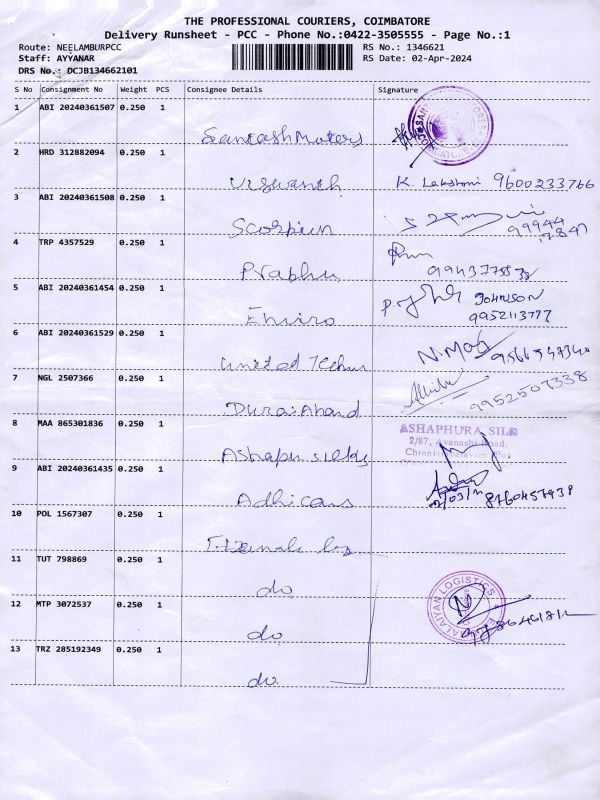 THE PROFESSIONAL COURIERS, COIMBATORE
Delivery Runsheet - PCC - Phone No.:0422-3505555 - Page No.:1
Route: NEELAMBURPCC
RS No.: 1346621
Staff: AYYANAR
RS Date: 02-Apr-2024
DRS No.: DCJB134662101
S No Consignment No Weight PCS Consignee Details Signature
1 ABI 20240361507 0.250 1
Santash Motors
2 HRD 312882094 0.250 1
Viswanth K. Lakshmi 9600233766
3 ABI 20240361508 0.250 1
Scorpion
4 TRP 4357529 0.250 1
Prabhu
5 ABI 20240361454 0.250 1
JOHNSON
Enviro 9952113777
6 ABI 20240361529 0.250 1
United
7 NGL 2507366 0.250 1
9952507338
Durai Anand
8 MAA 865301836 0.250 1
ASHAPHURA SILK
2/87, Avanashi Road,
Ashapu silks
9 ABI 20240361435 0.250 1
Adhicans
10 POL 1567307 0.250 1
11 TUT 798869 0.250 1
do
12 MTP 3072537 0.250 1
LOGISTICS
do
13 TRZ 285192349 0.250 1
do